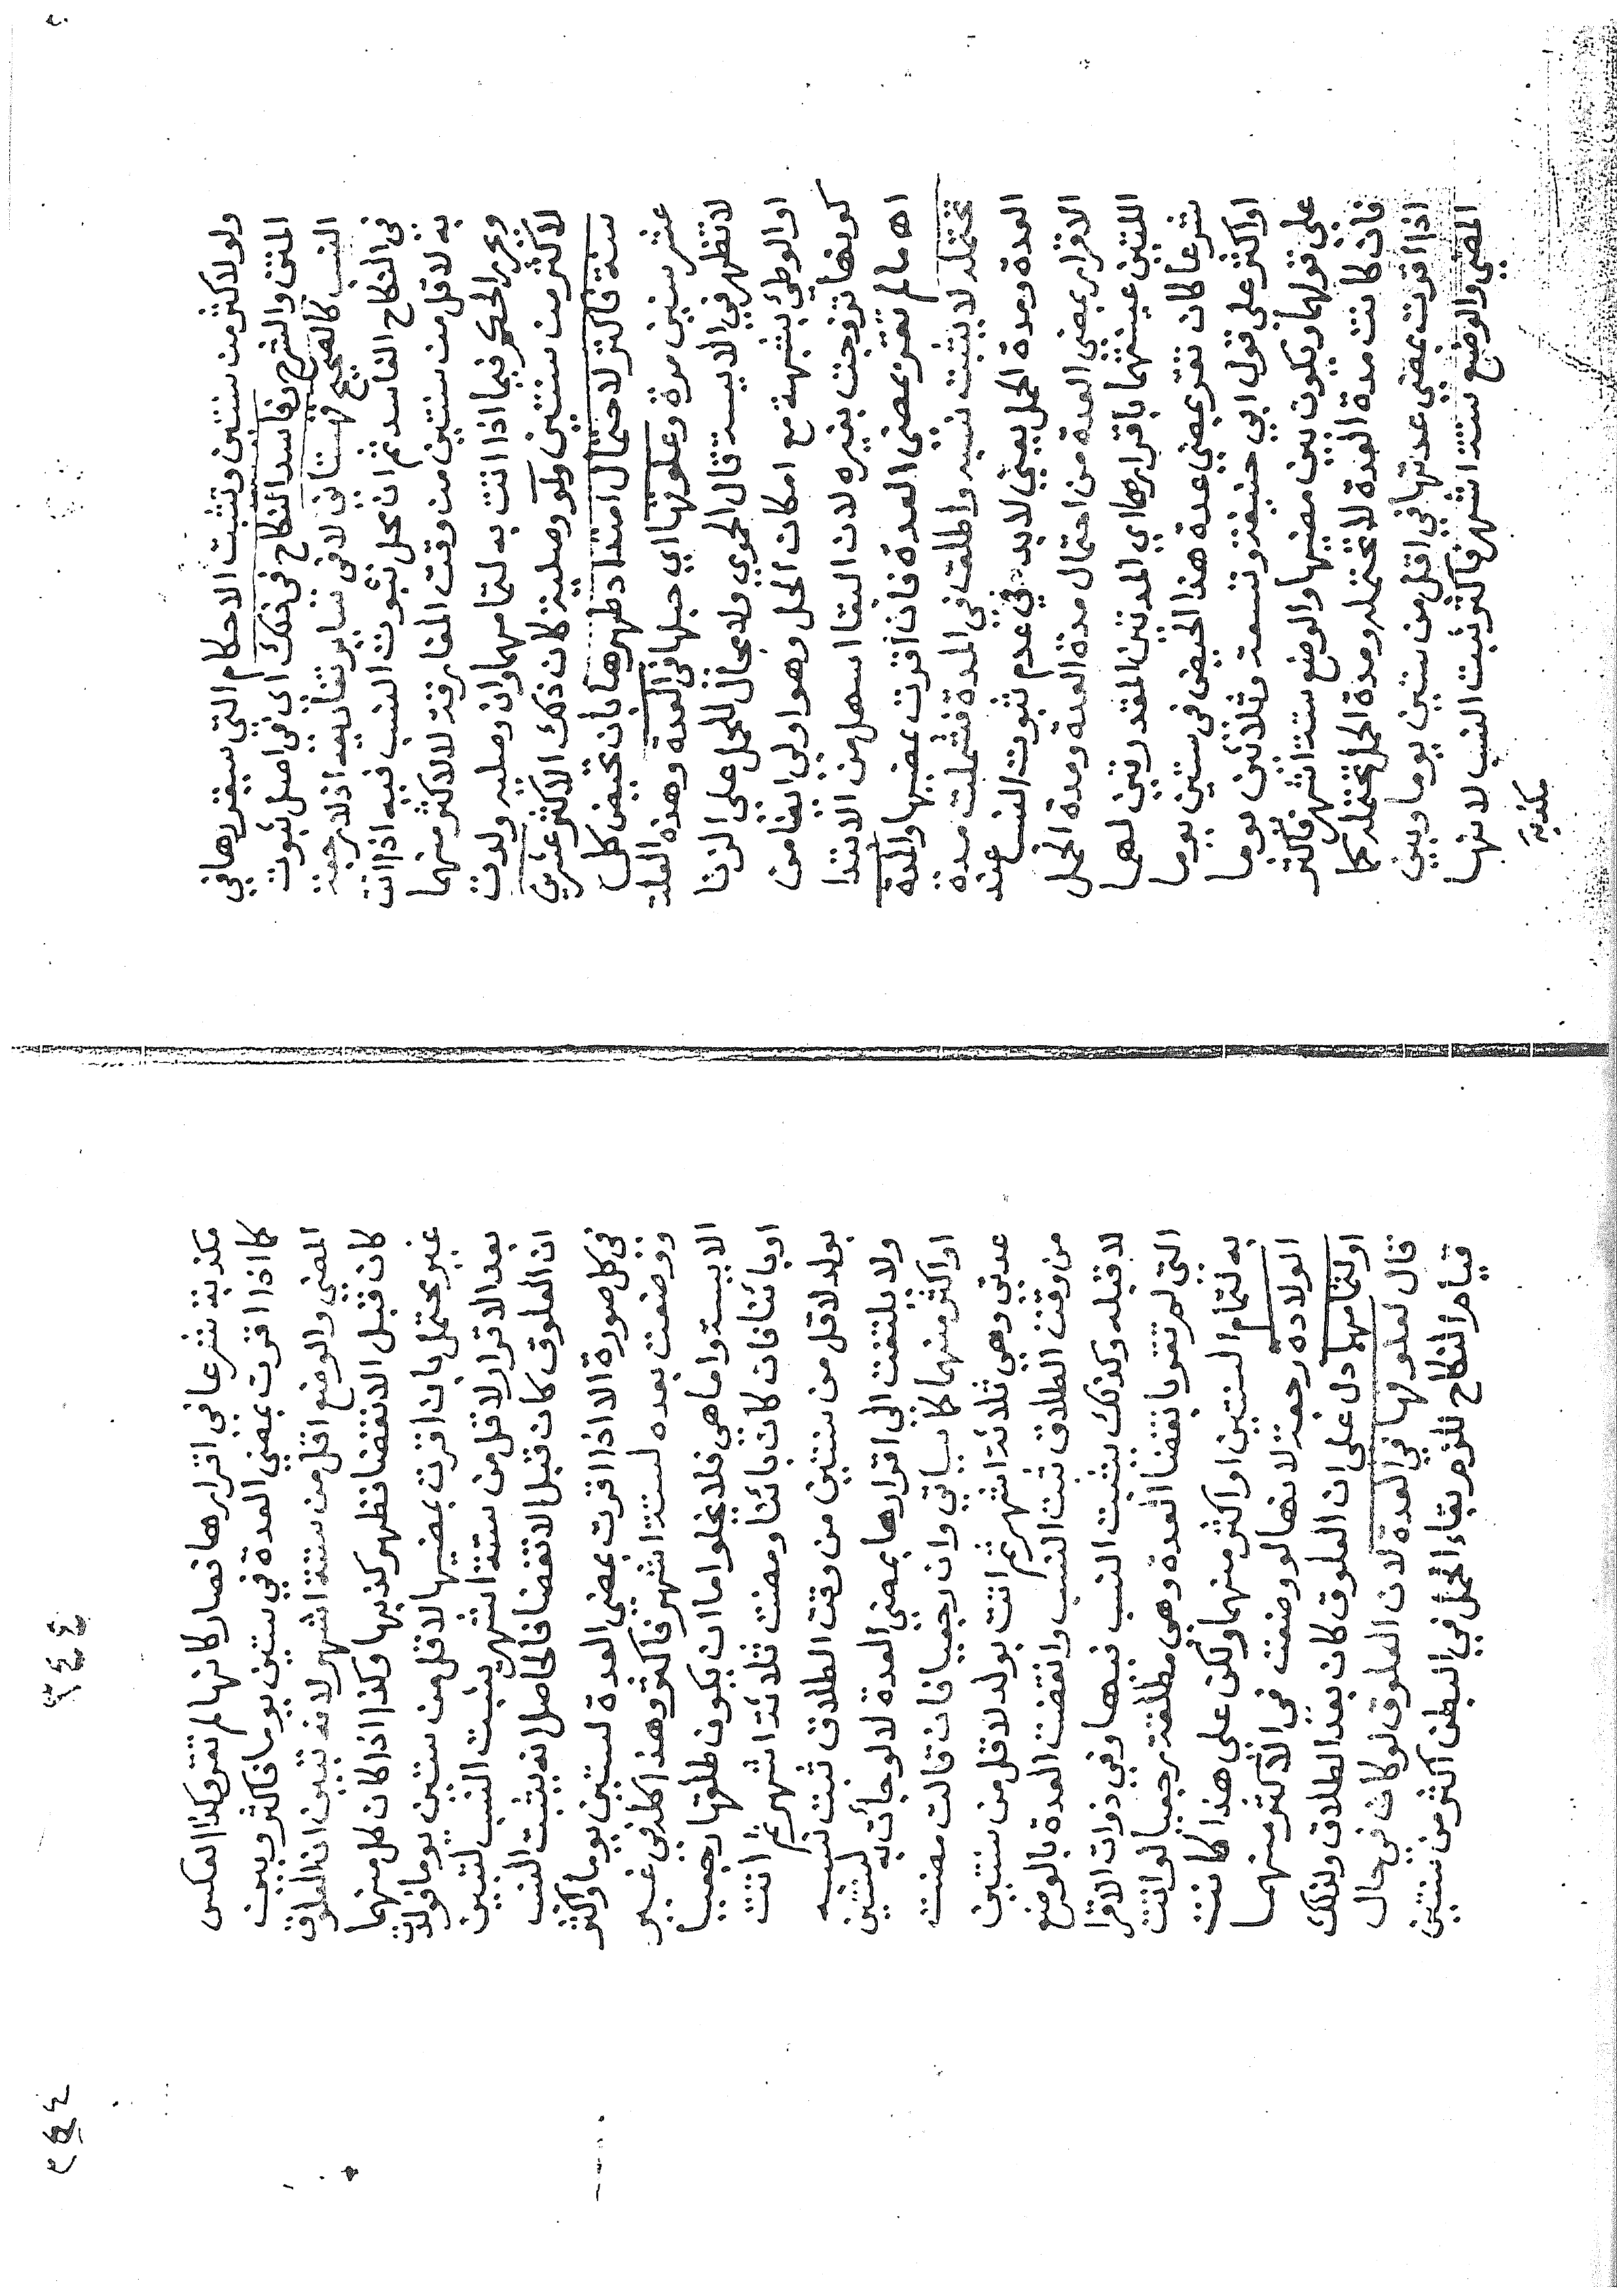 ولو لاكثر من سنتين وتثبت الاحكام التي سيقررها في
المتن والشرح وفاسد النكاح في ذلك اي في اصل ثبوت
النسب كالصحيح قهستاني لا في سايره تفاريعه اذ لا رجعة
في النكاح الفاسد ثم ان محل ثبوت النسب فيه اذا اتت
به لاقل من سنتين من وقت المفارقة لا لاكثر منهما
ويحرر الحكم فيما اذا اتت به لتمامهما وان وصلية ولدت
لاكثر من سنتين ولو وصلية كان ذلك الاكثر عشرين
سنة فاكثر لاحتمال امتداد طهرها بان تحيض كل
عشر سنين مرة وعلوقها اي حبلها في العدة وهذه العلة
لا تظهر في الايسة قال الحموي ولا مجال للحمل على الزنا
او الوطئ بشبهة مع امكان الحمل وهو اولى ايضا من
كونها تزوجت بغيره لان البقا اسهل من الابتدا
اه ما لم تقر بمضي العدة فان اقرت بمضيها والمدة
تحتمله لا يثبت نسبه واطلق في المدة فشملت مدة
العدة ومدة الحمل يعني لا بد في عدم ثبوت النسب عند
الاقرار بمضي العدة من احتمال مدة العدة ومدة الحمل
اللتين عينتهما باقرارها اي المدتين المقدرتين لهما
شرعا كان تقر بمضي عدة هذا الحيض في ستين يوما
او اكثر على قول ابي حنيفة وتسعة وثلاثين يوما
على قولهما ويكون بين مضيها والوضع ستة اشهر فاكثر
فان كانت مدة العدة لا تحتمله ومدة الحمل تحتمله كما
اذا اقرت بمضي عدتها في اقل من ستين يوما وبين
المضي والوضع ستة اشهر فاكثر ثبت النسب لانها
مكذبة
مكذبة شرعا في اقرارها فصار كانها لم تقر وكذا العكس
كما اذا اقرت بمضي العدة في ستين يوما فاكثر وبين
المضي والوضع اقل من ستة اشهر لانه تبين ان العلوق
كان قبل الانقضا فظهر كذبها وكذا اذا كان كل منهما
غير محتمل بان اقرت بمضيها لاقل من ستين يوما فولدت
بعد الاقرار لاقل من ستة اشهر يثبت النسب لتبين
ان العلوق كان قبل الانقضا فالحاصل انه يثبت النسب
في كل صورة الا اذا اقرت بمضي العدة لستين يوما واكثر
ووضعت بعده لستة اشهر فاكثر وهذا كله في غير
الايسة واما هي فلا يخلوا اما ان يكون طلقها رجعيا
او بائنا فان كان بائنا ومضت ثلاثة اشهر ثم اتت
بولد لاقل من سنتين من وقت الطلاق ثبت نسبه
ولا يلتفت الى اقرارها بمضي العدة لا لو جائت به لسنتين
او اكثر منهما كما سياتي وان رجعيا فان قالت مضت
عدتي وهي ثلاثة اشهر ثم اتت بولد لاقل من سنتين
من وقت الطلاق ثبت النسب وانقضت العدة بالوضع
لا قبله وكذلك يثبت النسب فيها وفي ذوات الاقرا
التي لم تقر بانقضا العدة وهي مطلقة رجعيا لو اتت
به لتمام السنتين او اكثر منهما ولكن على هذا كانت
الولادة رجعة لانها لو وضعت في الاكثر منهما
او لتمامهما دل على ان العلوق كان بعد الطلاق ولذلك
قال لعلوقها في العدة لان العلوق لو كان في حال
قيام النكاح للزم بقاء الحمل في البطن اكثر من سنتين
٢٥٤